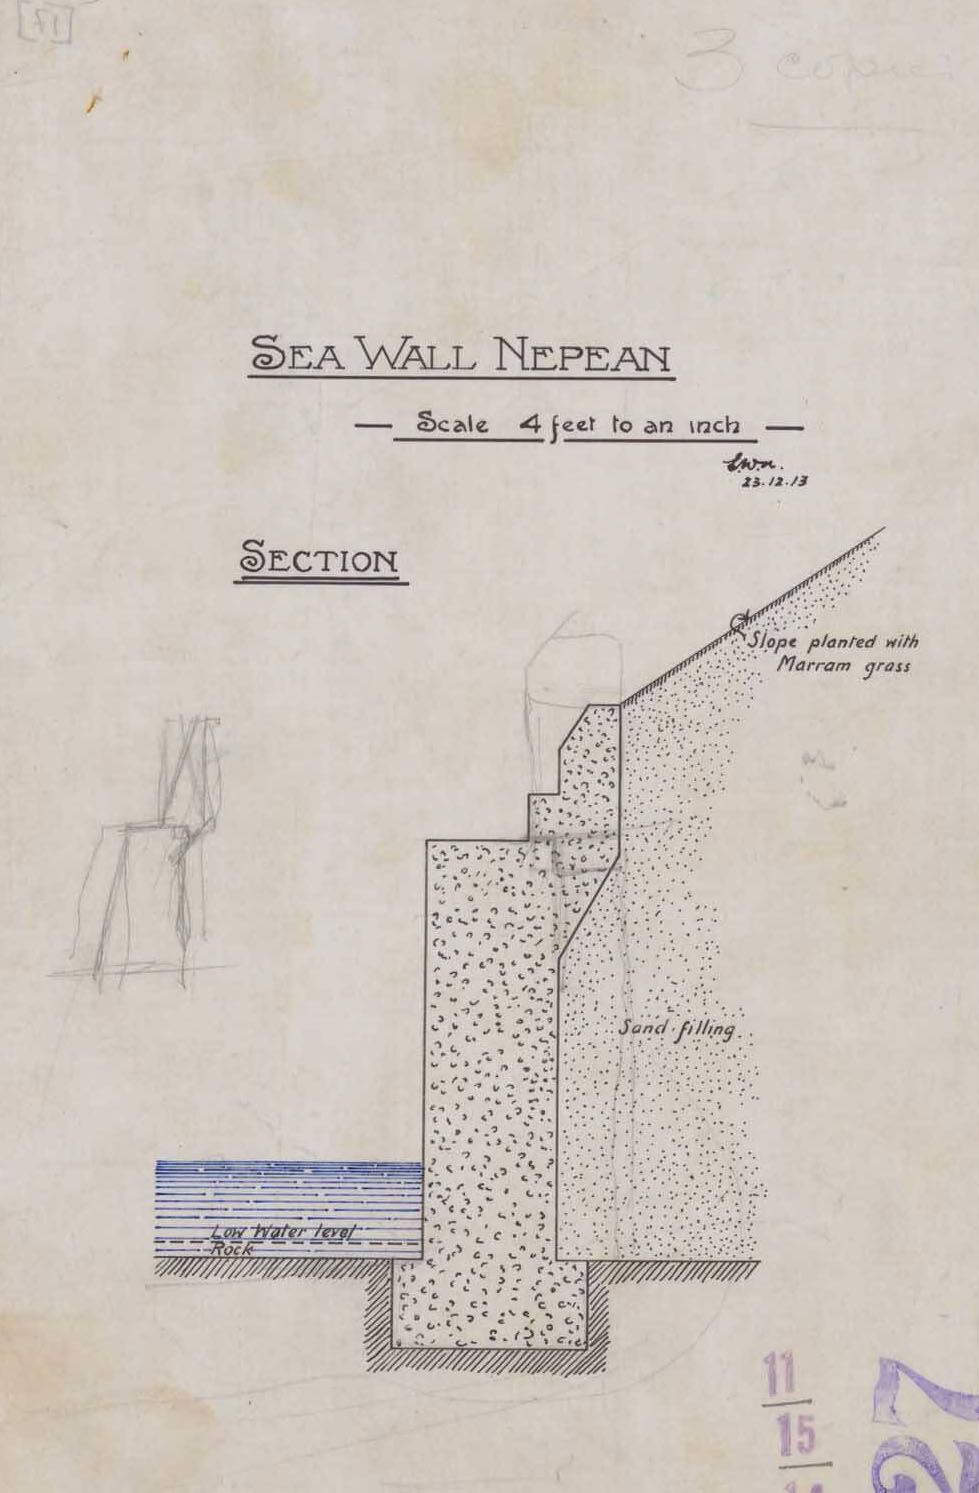 3 copies
SEA WALL NEPEAN
— Scale 4 feet to an inch —
23.12.13
SECTION
Slope planted with
Marram grass
Sand filling
Low Water level
Rock
11
15
14
27